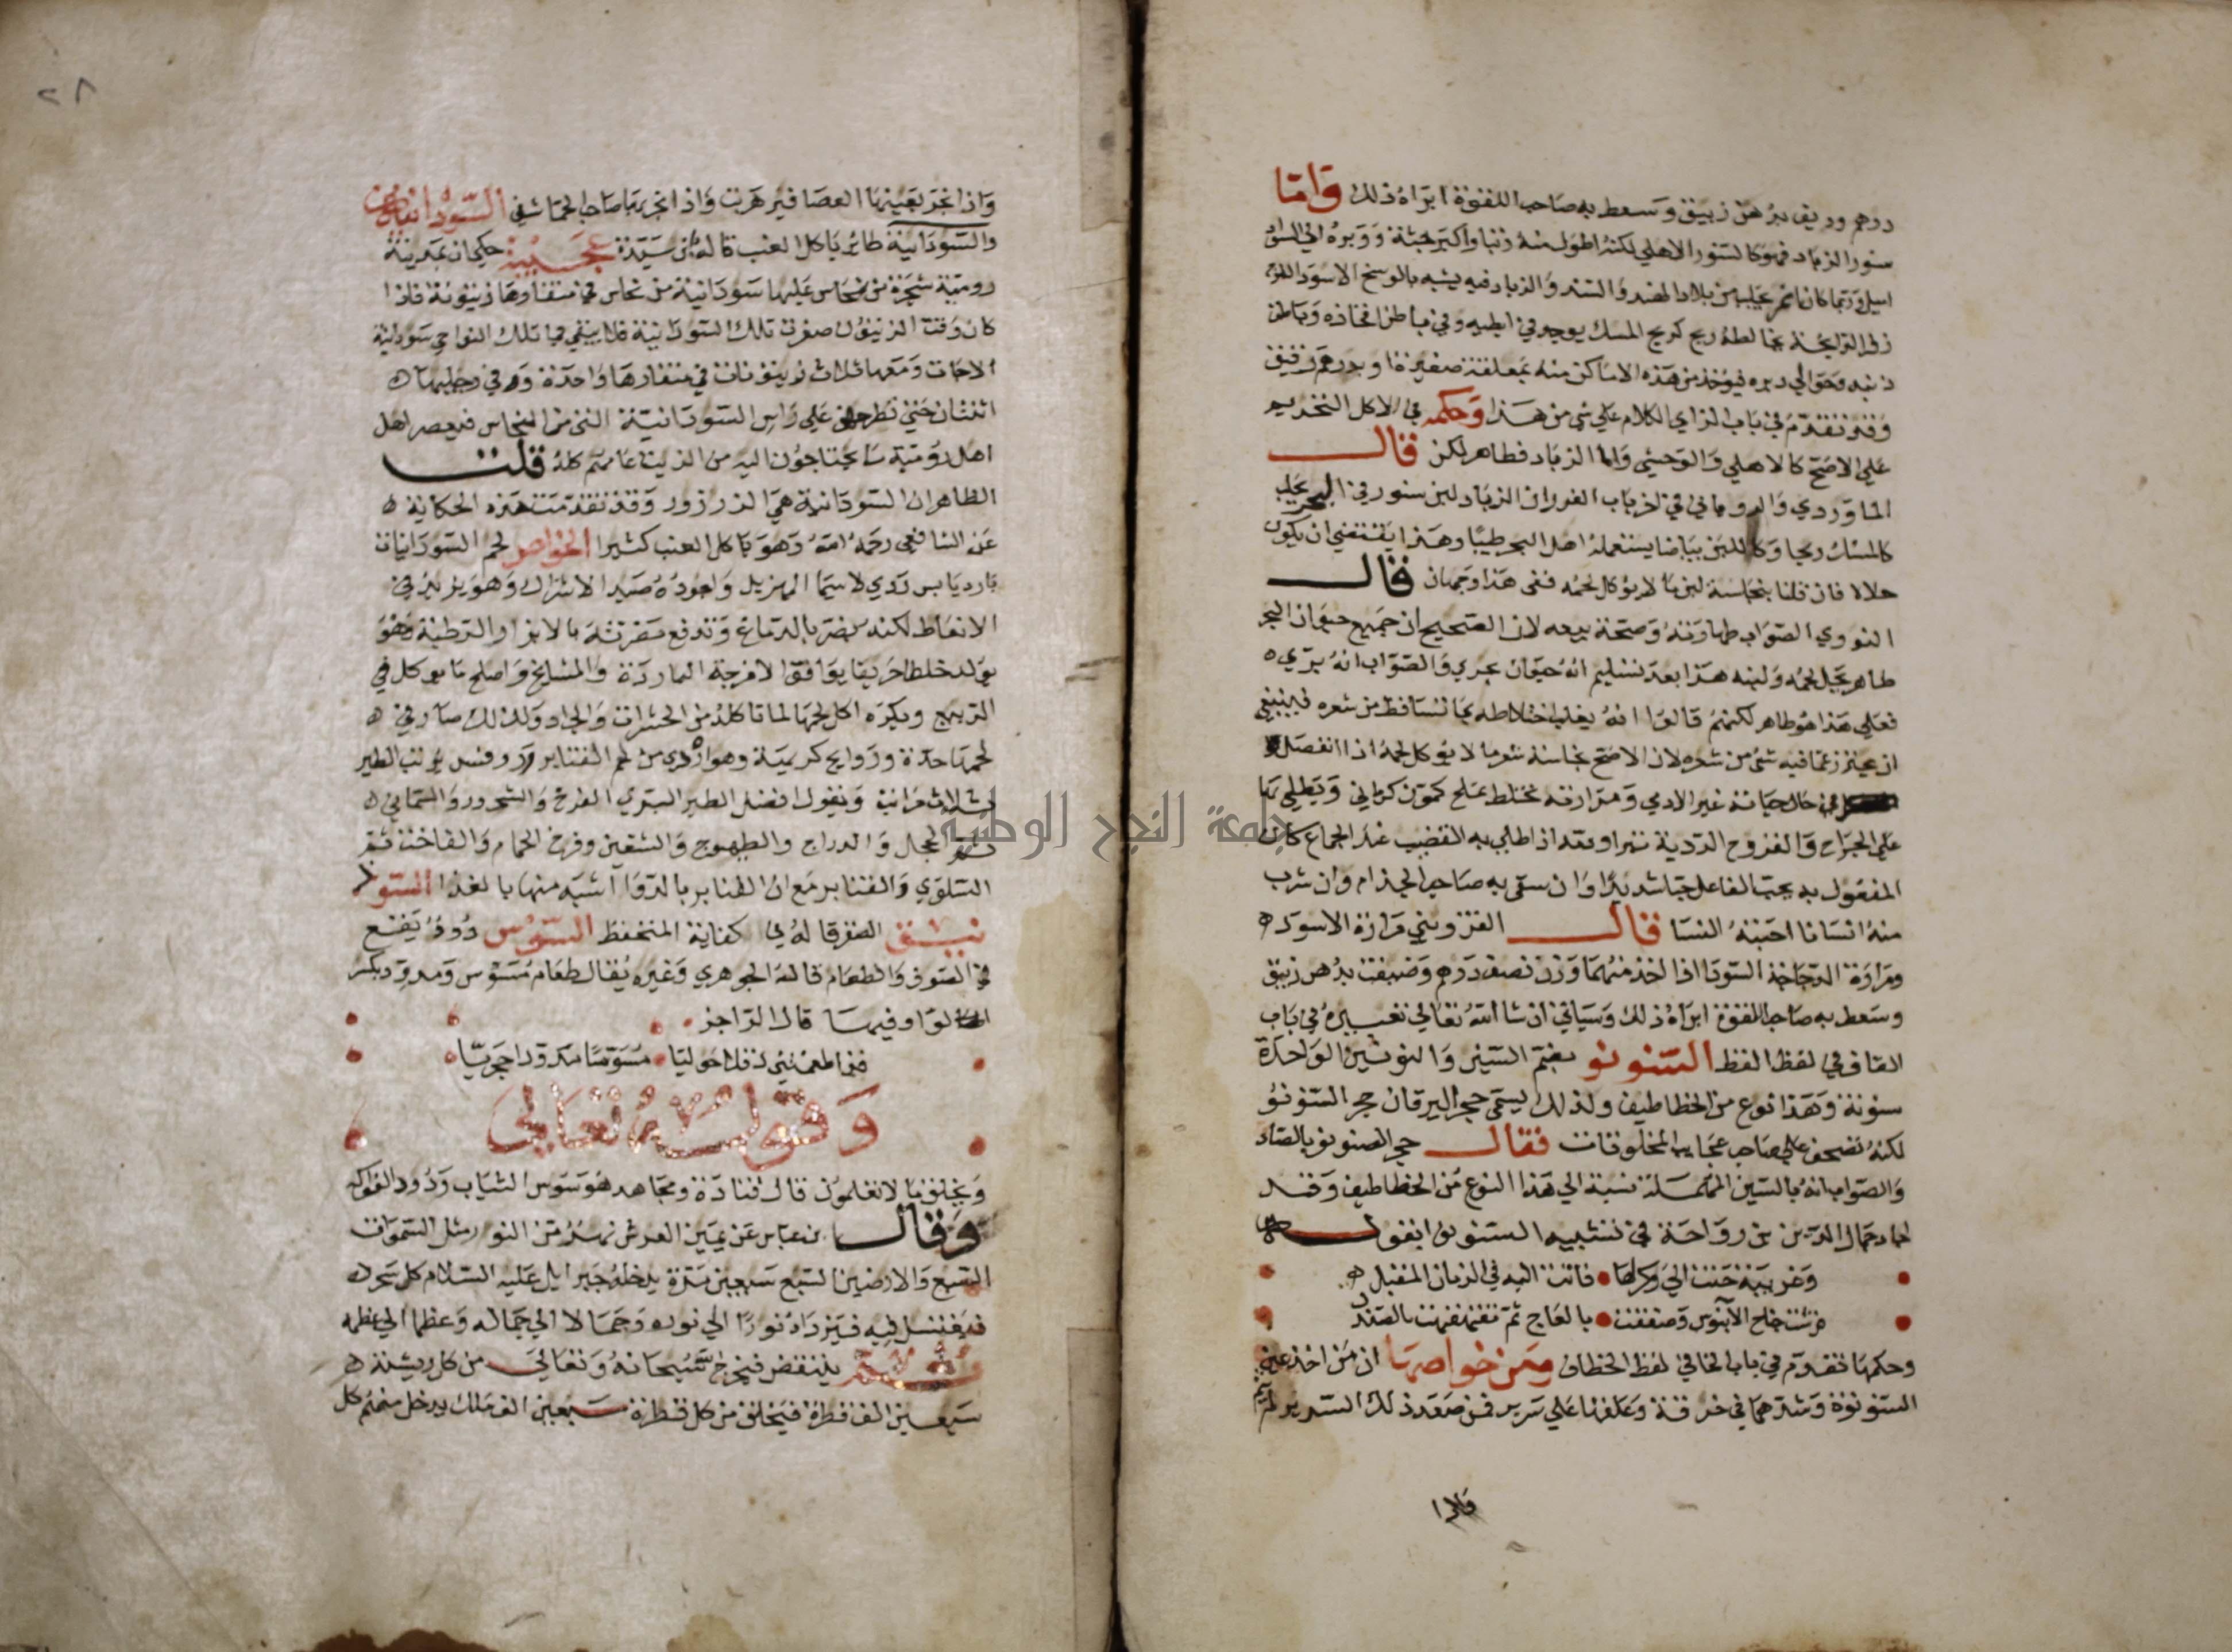 درهم وديف بدهن زيبق وسعط به صاحب اللقوة ابراه ذلك واما
سنور الزباد فهو كالسنور الاهلي لكنه اطول منه ذنبا واكبر جثة ووبره الي السواد
اميل وربما كان انمر يجلب من بلاد الهند والسند والزباد فيه يشبه بالوسخ الاسود اللزج
زفر الرايحة يخالطه ريح كريح المسك يوجد في ابطيه وفي باطن افخاذه وباطن
ذنبه وحوالي دبره فيوخذ من هذه الاماكن منه بملعقة صغيرة او بدرهم رقيق
وقد تقدم في باب الزاي الكلام علي شي من هذا وحكمه في الاكل التحريم
علي الاصح كالاهلي والوحشي واما الزباد فطاهر لكن قال
الماوردي والروياني في اخر باب الغرر ان الزباد لبن سنور في البحر يجلب
كالمسك ريحا وكاللبن بياضا يستعمله اهل البحر طيبا وهذا يقتضي ان يكون
حلالا فان قلنا بنجاسة لبن ما لا يوكل لحمه ففي هذا وجهان قال
النووي الصواب طهارته وصحة بيعه لان الصحيح ان جميع حيوان البحر
طاهر يحل لحمه ولبنه هذا بعد تسليم انه حيوان بحري والصواب انه بري ه
فعلي هذا هو طاهر لكنهم قالوا انه يغلب اختلاطه بما تساقط من شعره فينبغي
ان يحترز عما فيه شي من شعره لان الاصح نجاسة شعر ما لا يوكل لحمه اذا انفصل
في حال حياته غير الادمي ومرارته تختلط بملح كمون كرماني ويطلي بها
علي الجراح والقروح الردية تبرا وبعد اذا طلي به القضيب عند الجماع كان
المفعول به يحب الفاعل حبا شديدا وان سقي به صاحب الجذام وان شرب
منه انسانا احبته النسا قال القزويني مرارة الاسود ه
ومرارة الدجاجة السودا اذا اخذ منهما وزن نصف درهم وضيفت بدهن زيبق
وسعط به صاحب اللقوة ابراه ذلك وسياتي ان شا الله تعالي تعبيره في باب
القاف في لفظ القط السنونو بضم السين والنونين الواحدة
سنونة وهذا نوع من الخطاطيف ولذلك يسمي حجر اليرقان حجر السنونو
لكنه تصحف علي صاحب عجايب المخلوقات فقال حجر الصنونو بالصاد
والصواب انه بالسين المهملة نسبة الي هذا النوع من الخطاطيف وقد
اجاد جمال الدين بن رواحة في تشبيه السنونو بقوله
وغريبة حنت الي وكر لها • فاتت اليه في الزمان المقبل ه
فرشت جناح الآبنوس وصفقت • بالعاج ثم تقهقهت بالصندل
وحكمها تقدم في باب الخا في لفظ الخطاف ومن خواصها ان من اخذ عيني
السنونوة وشدهما في خرقة وعلقها علي سرير فمن صعد ذلك السرير لم ينم
واذا بخر بعينها العصافير هربت واذا بخر بها صاحب الحما شفي السودانة
والسودانية طائر ياكل العنب قاله بن سيدة عجيبة حكي ان بمدينة
رومية شجرة من نحاس عليها سودانية من نحاس في منقارها زيتونة فاذا
كان وقت الزيتون صفرت تلك السودانية فلا يبقي في تلك النواحي سودانية
الا جات ومعها ثلاث زيتونات في منقارها واحدة وفي رجليها ه
اثنتان حتي تطرحهن علي راس السودانية التي من النحاس فيعصر اهل
اهل رومية ما يحتاجون اليه من الزيت عامهم كله قلت
الظاهر ان السودانية هي الزرزور وقد تقدمت هذه الحكاية ه
عن الشافعي رحمه الله وهو ياكل العنب كثيرا الخواص لحم السودانيات
بارد يابس ردي لا سيما المهزيل واجوده صيد الاشراك وهو يزيد في
الانعاظ لكنه يضر بالدماغ وتدفع مضرته بالابزار الرطبة وهو
يولد خلطا حريفا يوافق الامزجة الباردة والمشايخ واصلح ما يوكل في
الربيع ويكره اكل لحمها لما تاكله من الحشرات والجراد ولذلك صار في ه
لحمها حدة وروايح كريهة وهو اردي من لحم القنابر وروفس يرتب الطير
بثلاث مراتب ويقول افضل الطير البري الفرخ والشحرور والسماني ه
ثم الحجل والدراج والطيهوج والشفنين وفرخ الحمام والفاخت ثم
السلوي والقنابر مع ان القنابر بالدوا اشبه منها بالغذا السوذ
نيق الصقر قاله في كفاية المتحفظ السوس دود يقع
في الصوف والطعام قاله الجوهري وغيره يقال طعام مسوس ومدود بكسر
الواو فيهما قال الراجز
قد اطعمتني دقلا حوليا • مسوسا مدودا حجريا ه
وقوله تعالى
ويخلق ما لا تعلمون قال قتادة ومجاهد هو سوس الثياب ودود الفواكه
وقال بن عباس عن يمين العرش نهر من النور مثل السموات
السبع والارضين السبع سبعين مرة يدخله جبرايل عليه السلام كل سحر
فيغتسل فيه فيزداد نورا الي نوره وجمالا الي جماله وعظما الي عظمه
ثم ينتفض فيخرج الله سبحانه وتعالي من كل ريشة ه
سبعين الف قطرة فيخلق من كل قطرة سبعين الف ملك يدخل منهم كل